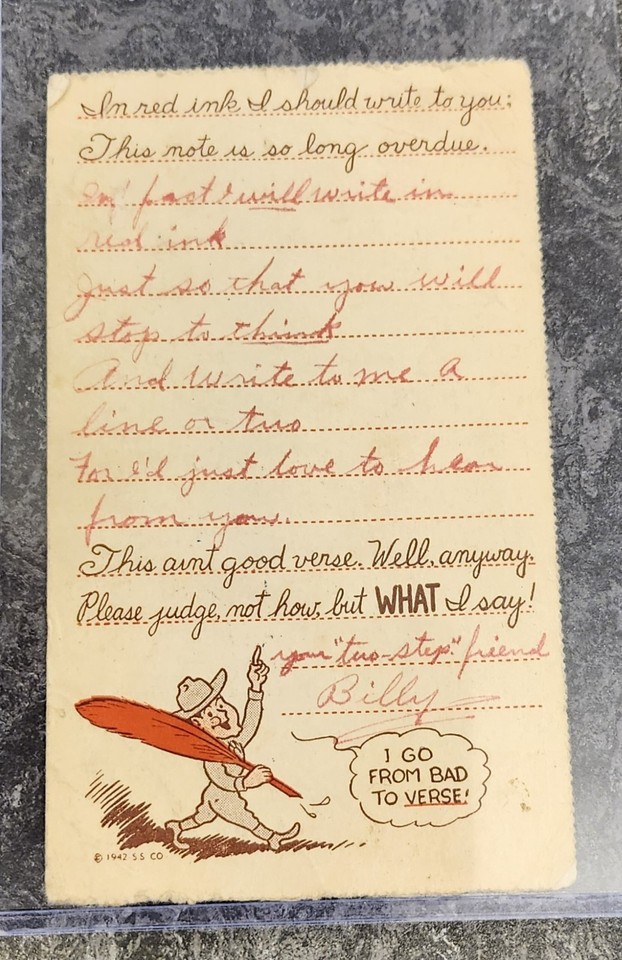 In red ink I should write to you;
This note is so long overdue.
In fact I will write in
red ink
Just so that you will
stop to think
And write to me a
line or two
For I'd just love to hear
from you.
This aint good verse. Well, anyway.
Please judge, not how, but WHAT I say!
your "two-step" friend
Billy
I GO
FROM BAD
TO VERSE!
© 1942 S.S. CO